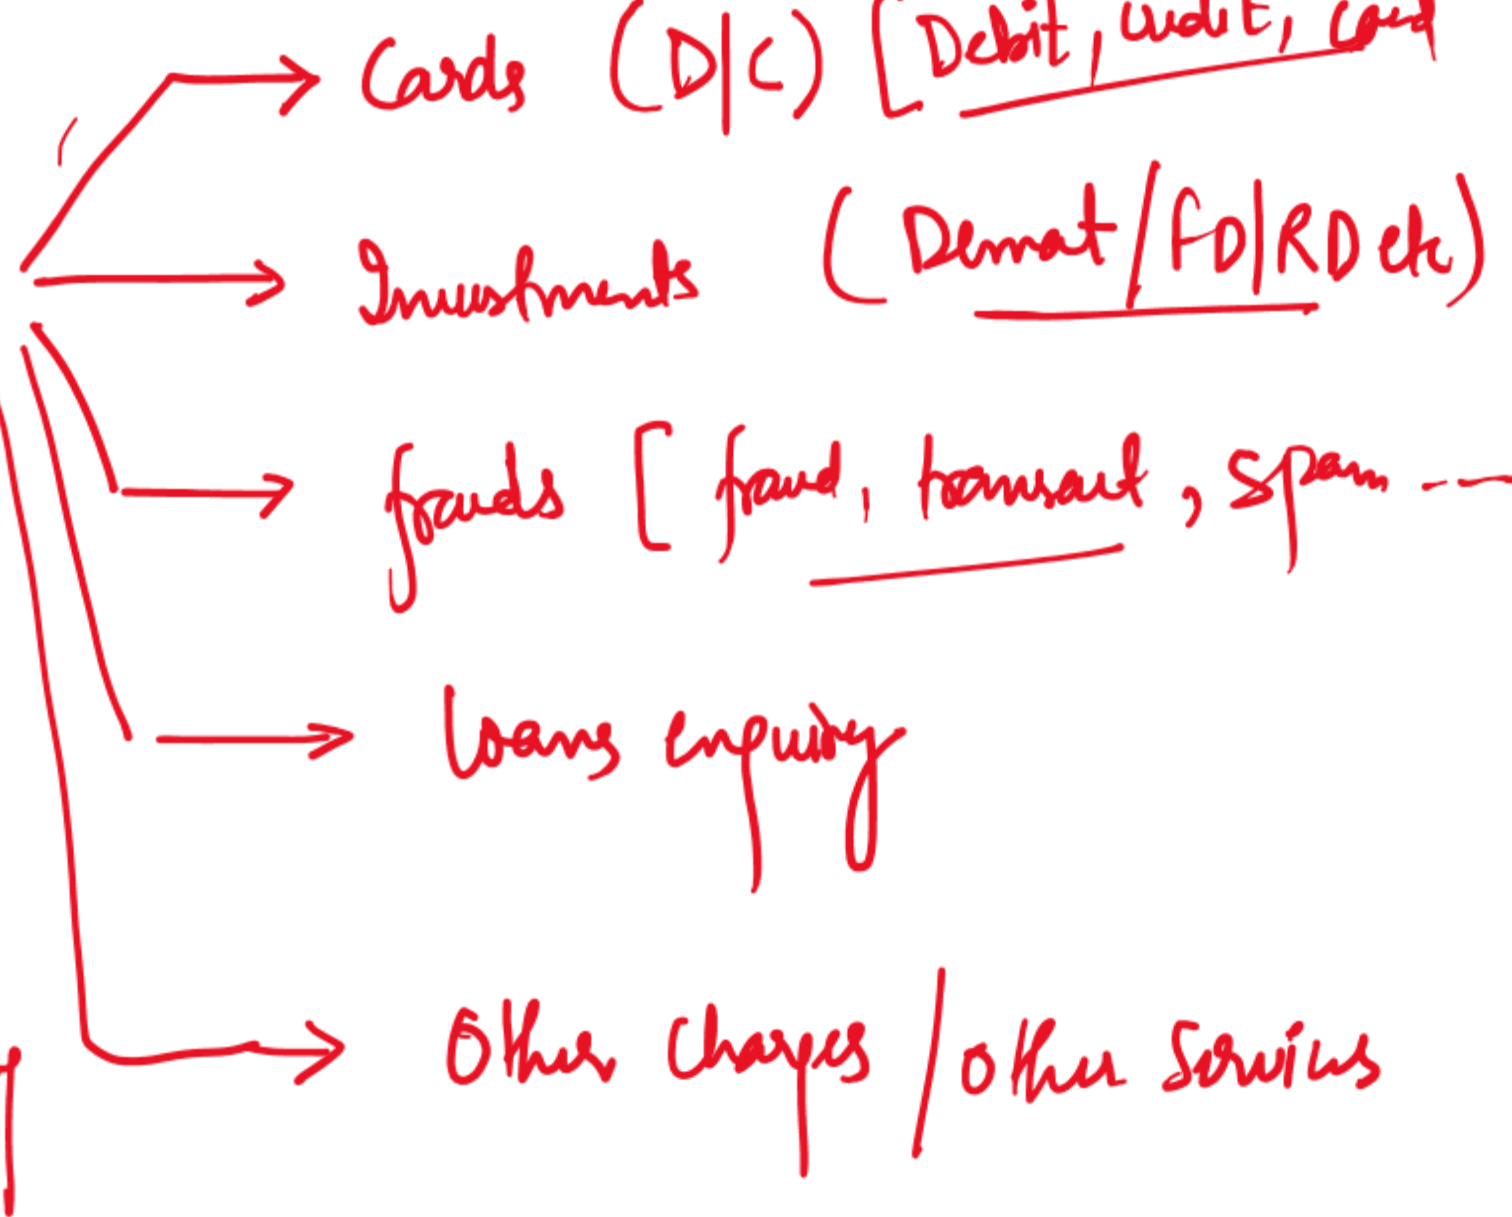 Cards (D|C) [Debit, credit, card
Investments (Demat/FD|RD etc)
frauds [fraud, transact, spam ----
Loans enquiry
Other Charges / Other Services